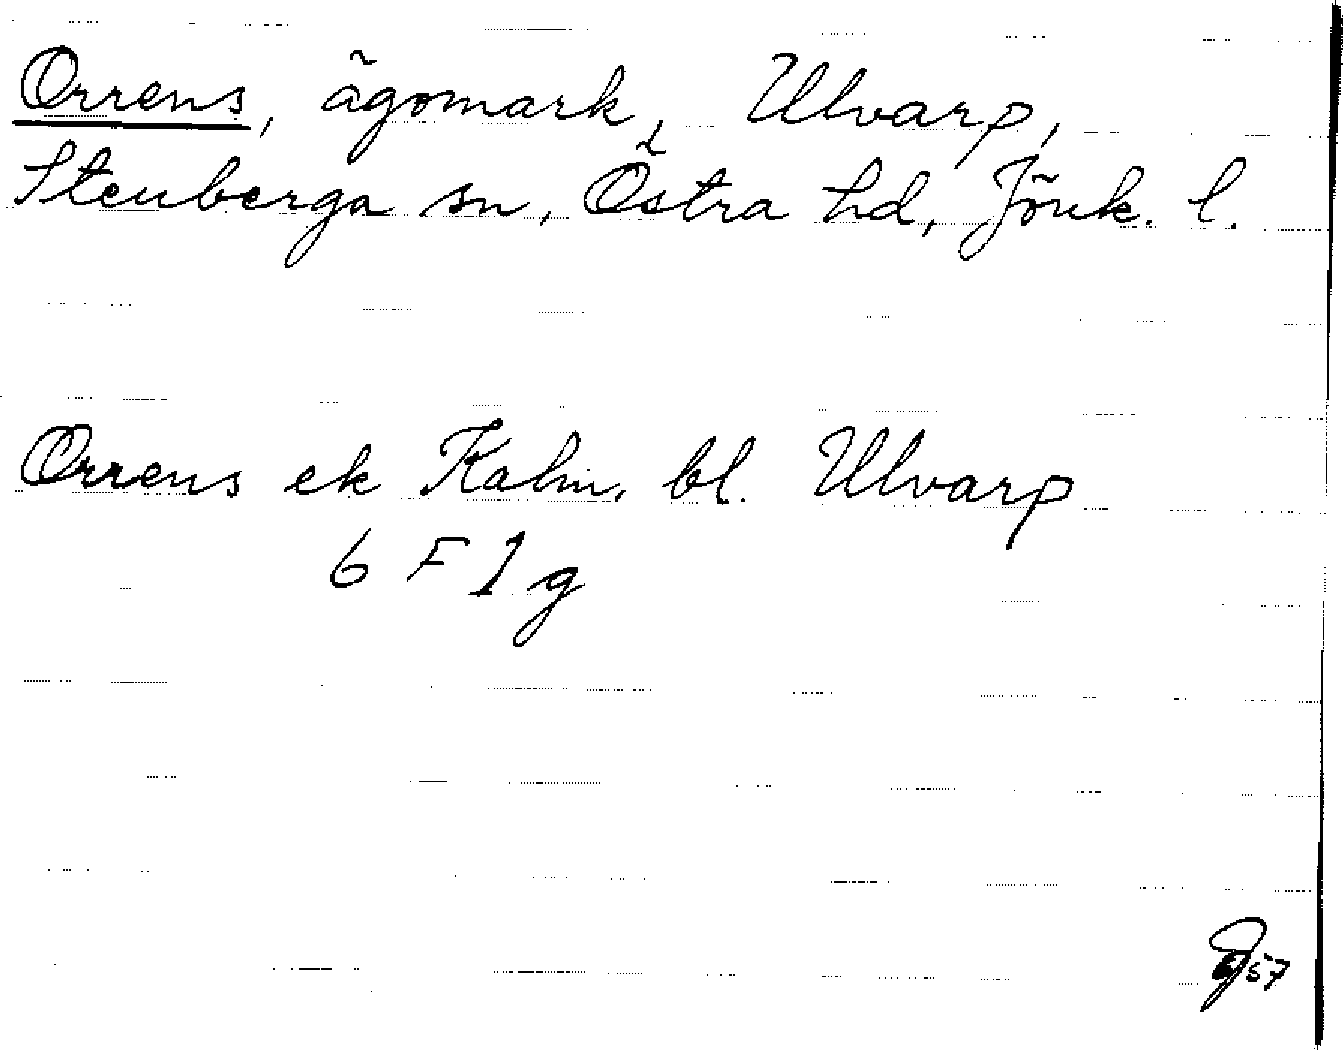 Orrens, ägomark, Ulvarp,
Stenberga sn, Östra hd, Jönk. l.
Orrens ek Kalm. bl. Ulvarp
6 F 1 g
57